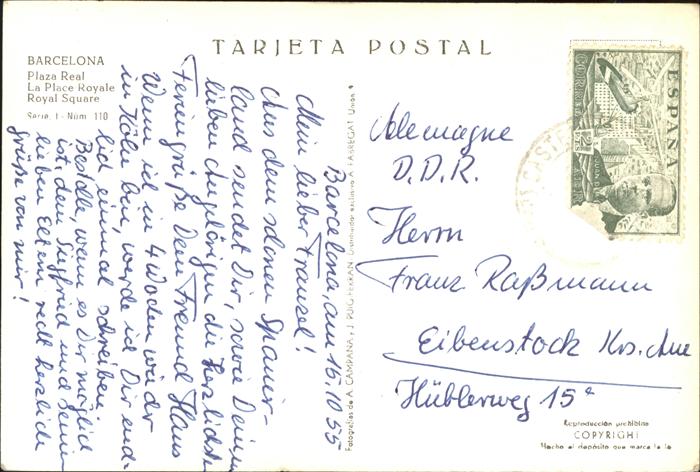 TARJETA POSTAL
BARCELONA
Plaza Real
La Place Royale
Royal Square
Serie, I - Núm 110
Barcelona, am 16.10 55
Mein lieber Franzel!
Aus dem schönen Spanier-
land sendet Dir, sowie Deinen
lieben Angehörigen die herzlichsten
Feriengrüße Dein Freund Hans
Wenn ich in 4 Wochen wieder
in Köln bin, werde ich Dir end-
lich einmal schreiben.
Bestelle, wenn es Dir möglich
ist, dem Siegfried und seinen
lieben Eltern recht herzliche
Grüße von mir!
Fotografías de A. CAMPAÑA y J. PUIG FERRAN. Distribuidor exclusivo A. FABREGAT. Unión
Alemagne
D.D.R.
Herrn
Franz Raßmann
Eibenstock Krs. Aue
Hüblerweg 15ᵃ
ESPAÑA
CORREO
2
Reproducción prohibida
COPYRIGHT
Hecho el depósito que marca la le